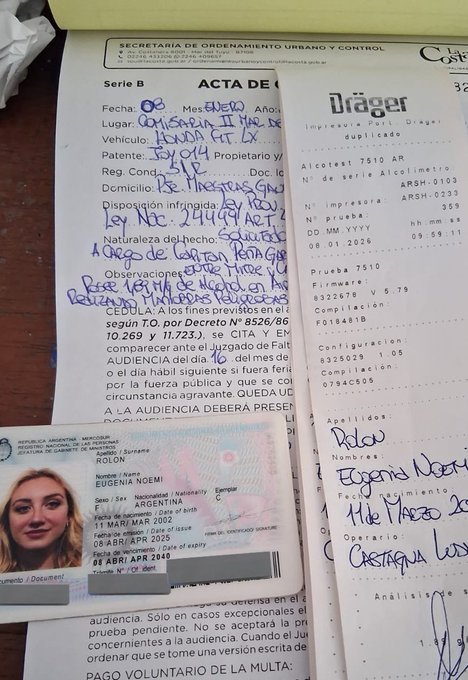 SECRETARÍA DE ORDENAMIENTO URBANO Y CONTROL
Av. Costanera 8001 - Mar del Tuyú - B7108
02246 433206 02246 409657
La
Costa
Serie B ACTA DE
Fecha: 08 Mes: ENERO Año:
Lugar: COMISARIA II MAR DE
Vehículo: HONDA FIT LX
Patente: Propietario y/
Reg. Cond. S/R Doc. Ic
Domicilio:
Disposición infringida: Ley PROV.
Ley NAC. 24449 ART
Naturaleza del hecho:
A CARGO de CAPITAN PEÑA
Observaciones: ENTRE MITRE Y
POSEE 1,89 Mg de Alcohol en
REALIZANDO MANIOBRAS PELIGROSAS
CEDULA: A los fines previstos en el
según T.O. por Decreto N° 8526/86
10.269 y 11.723.), se CITA Y EM
comparecer ante el Juzgado de Falt
AUDIENCIA del día. 16 del mes de
o el día hábil siguiente si fuera feria
por la fuerza pública y que se con
circunstancia agravante. QUEDA UD
A LA AUDIENCIA DEBERÁ PRESEN
REPUBLICA ARGENTINA - MERCOSUR
REGISTRO NACIONAL DE LAS PERSONAS
JEFATURA DE GABINETE DE MINISTROS
Apellido / Surname
ROLON
Nombre / Name
EUGENIA NOEMI
Sexo / Sex Nacionalidad / Nationality Ejemplar
F ARGENTINA C
Fecha de nacimiento / Date of birth
11 MAR/ MAR 2002
Fecha de emisión / Date of issue
08 ABR/ APR 2025
FIRMA DEL IDENTIFICADO / SIGNATURE
Fecha de vencimiento / Date of expiry
08 ABR/ APR 2040
Trámite N° / Of. ident.
Documento / Document
su defensa en el a
audiencia. Sólo en casos excepcionales el
prueba pendiente. No se aceptará la pre
concernientes a la audiencia. Cuando el Jue
ordenar que se tome una versión escrita de
PAGO VOLUNTARIO DE LA MULTA:
Dräger
Impresora Port. Dräger
duplicado
Alcotest 7510 AR
N° de serie Alcolimetro
ARSH-0103
N° impresora: ARSH-0233
N° prueba: 359
DD.MM.YYYY hh:mm:ss
08.01.2026 09:59:11
Prueba 7510
Firmware:
8322678 V 5.79
Compilación:
F018481B
Configuración:
8325029 1.05
Compilación:
0794C505
Apellidos:
ROLON
Nombres:
EUGENIA NOEMI
Fecha nacimiento
11 de MARZO 20
Operario:
CASTAGNA
Análisis de s